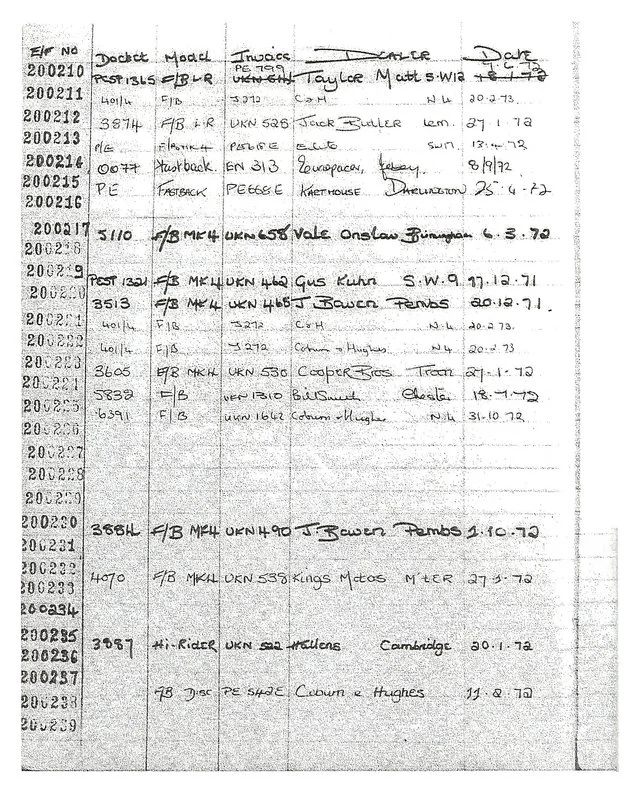 E/F NO Docket Model Invoice DEALER Date
200210 PCST 1365 F/B L-R PE 799 UKN 511 Taylor Matt S.W12 7.6.72 18.1.72
200211 401/4 F/B J272 C & H N.4 20.2.73
200212 3874 F/B L.R UKN 528 Jack Butler Lem. 27.1.72
200213 P/E F/B MK4 13.4.72
200214 0077 Fastback EN 313 Europacars, 8/9/72
200215 PE FASTBACK PE668E KARTHOUSE DARLINGTON 25.4.72
200216
200217 5110 F/B MK4 UKN 658 Vale Onslow Birmingham 6.3.72
200218
200219 PCST 1321 F/B MK4 UKN 462 Gus Kuhn S.W.9 17.12.71
200220 3513 F/B MK4 UKN 465 J Bowen Pembs 20.12.71.
200221 401/4 F/B J272 C & H N.4 20.2.73.
200222 401/4 F/B J272 Coburn & Hughes N4 20.2.73
200223 3605 F/B MK4 UKN 530 Cooper Bros 27.1.72
200224 5832 F/B UKN 1310 Bill Smith Chester 18.7.72
200225 6391 F/B UKN 1642 Coburn & Hughes N.4 31.10.72
200226
200227
200228
200229
200230 3884 F/B MK4 UKN 490 J. Bowen Pembs 1.10.72
200231
200232
200233 4070 F/B MK4 UKN 538 Kings Motos M'TER 27.1.72
200234
200235 3887 Hi-Rider UKN 522 Hallens Cambridge 20.1.72
200236
200237
200238 F/B Disc PE 542E Coburn & Hughes 11.2.72
200239